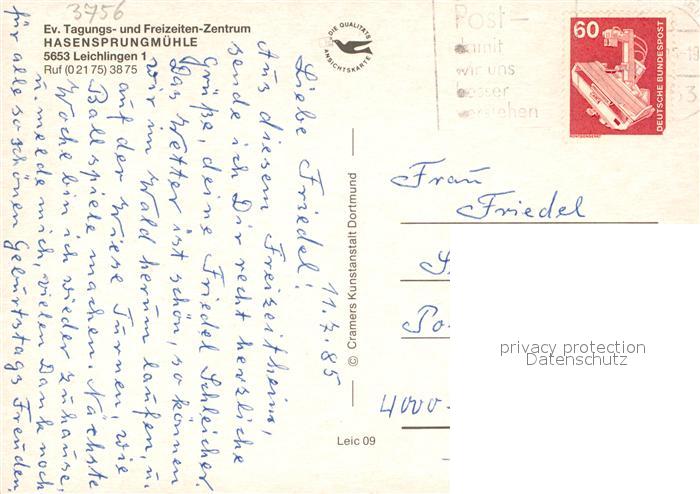 3756
Ev. Tagungs- und Freizeiten-Zentrum
HASENSPRUNGMÜHLE
5653 Leichlingen 1
Ruf (0 21 75) 38 75
DIE QUALITÄTS
ANSICHTSKARTE
Post-
damit
wir uns
besser
verstehen
60
DEUTSCHE BUNDESPOST
RÖNTGENGERÄT
11.7.85
Liebe Friedel!
Aus diesem Freizeitheim,
sende ich Dir recht herzliche
Grüße, deine Friedel Schleicher.
Das Wetter ist schön, so können
wir im Wald herum laufen, u.
auf der Wiese Turnen, wie
Ballspiele machen. Nächste
Woche bin ich wieder zuhause,
u. melde mich, vielen Dank noch
für alle so schönen Geburtstags Freuden
© Cramers Kunstanstalt Dortmund
Leic 09
Frau
Friedel
4000
privacy protection
Datenschutz